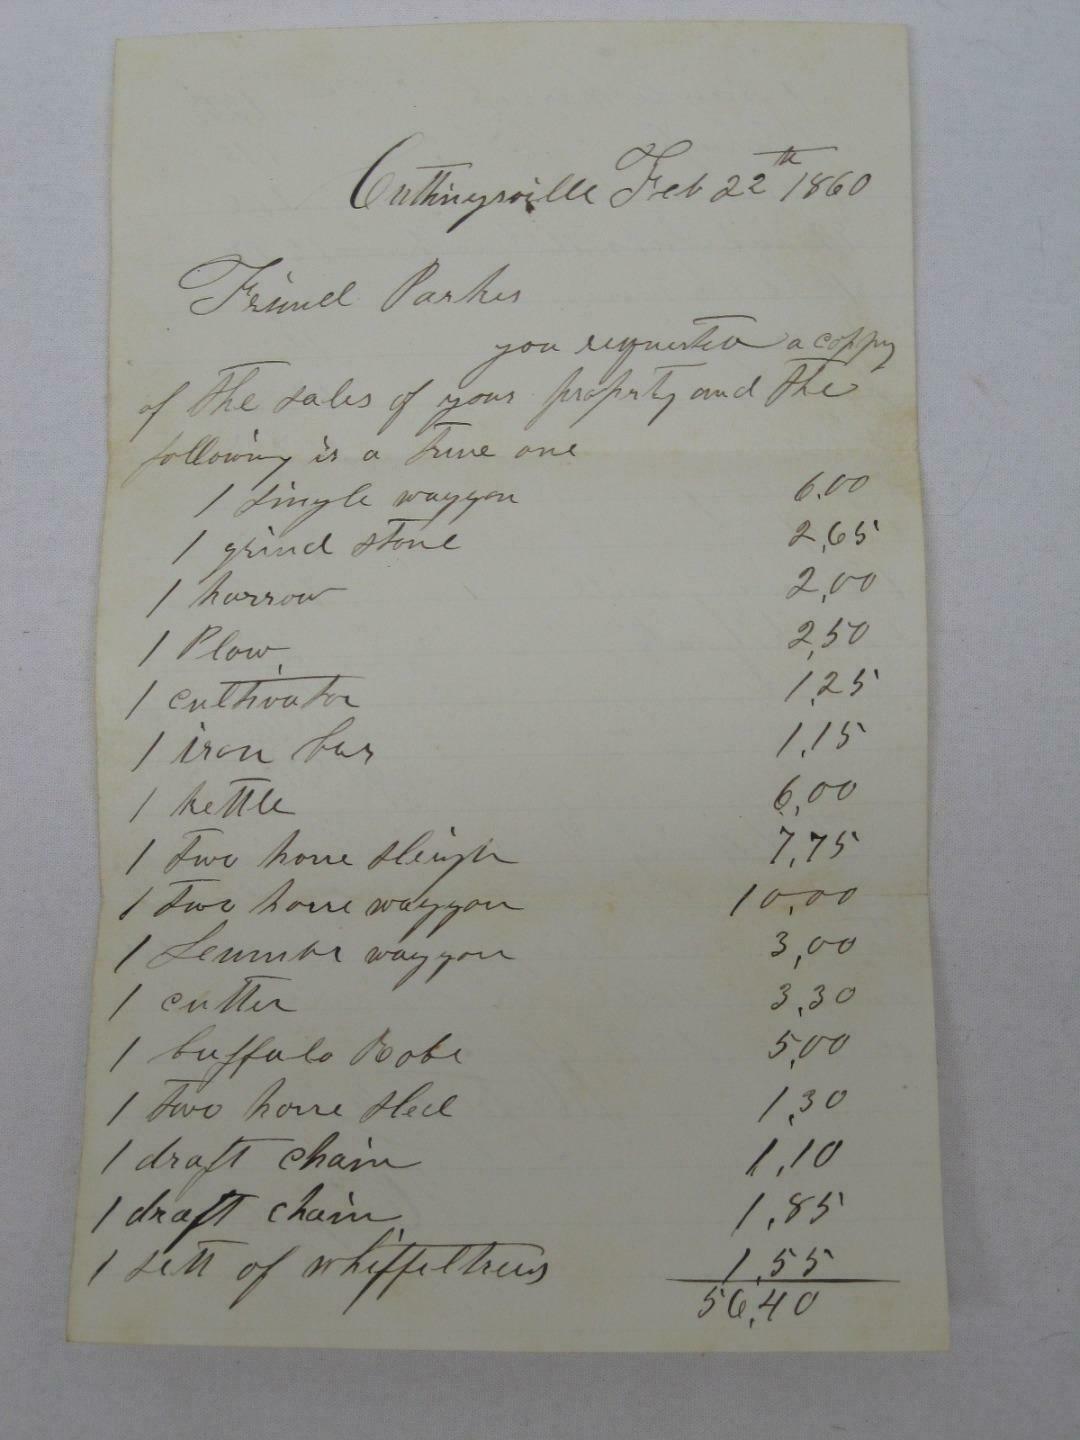 Cuttingsville Feb 22th 1860
Friend Parker
you requested a coppy
of the sales of your proprty and the
following is a true one
1 single waggon 6.00
1 grind stone 2,65
1 harrow 2,00
1 Plow 2,50
1 cultivator 1,25
1 iron bar 1,15
1 kettle 6,00
1 two horse sleigh 7,75
1 two horse waggon 10,00
1 waggon 3,00
1 cutter 3,30
1 buffalo Robe 5,00
1 two horse sled 1,30
1 draft chain 1,10
1 draft chain 1,85
1 sett of whiffeltrees 1,55
56,40